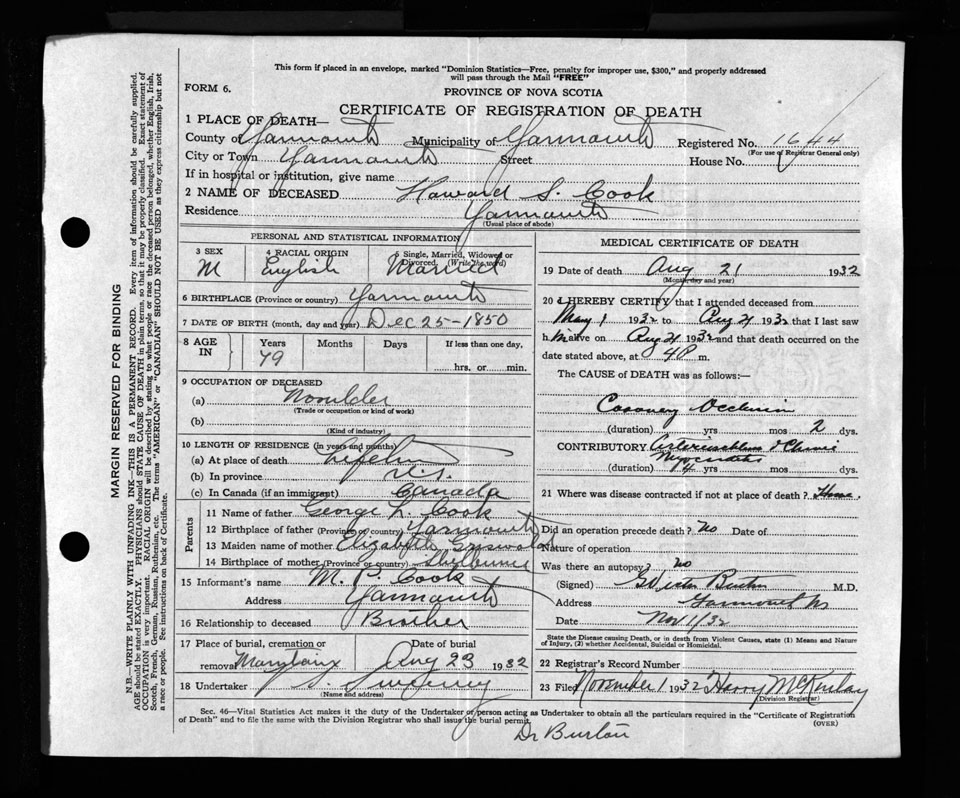 This form if placed in an envelope, marked "Dominion Statistics—Free, penalty for improper use, $300," and properly addressed
will pass through the Mail "FREE"
FORM 6.
PROVINCE OF NOVA SCOTIA
CERTIFICATE OF REGISTRATION OF DEATH
1 PLACE OF DEATH—
County of Yarmouth Municipality of Yarmouth Registered No. 1644
(For use of Registrar General only)
City or Town Yarmouth Street House No.
If in hospital or institution, give name
2 NAME OF DECEASED Howard S. Cook
Residence Yarmouth
(Usual place of abode)
PERSONAL AND STATISTICAL INFORMATION
3 SEX 4 RACIAL ORIGIN 5 Single, Married, Widowed or Divorced. (Write the word)
M English Married
6 BIRTHPLACE (Province or country) Yarmouth
7 DATE OF BIRTH (month, day and year) Dec 25-1850
8 AGE IN Years Months Days If less than one day,
79 hrs. or min.
9 OCCUPATION OF DECEASED
(a)
(Trade or occupation or kind of work)
(b)
(Kind of industry)
10 LENGTH OF RESIDENCE (in years and months)
(a) At place of death
(b) In province
(c) In Canada (if an immigrant) Canada
Parents
11 Name of father George L. Cook
12 Birthplace of father (Province or country) Yarmouth
13 Maiden name of mother Elizabeth
14 Birthplace of mother (Province or country) Shelburne
15 Informant's name M. P. Cook
Address Yarmouth
16 Relationship to deceased Brother
17 Place of burial, cremation or removal Date of burial
Aug 23 1932
18 Undertaker Sweeney
(Name and address)
MEDICAL CERTIFICATE OF DEATH
19 Date of death Aug 21 1932
(Month, day and year)
20 I HEREBY CERTIFY that I attended deceased from
May 1 1932 to Aug 21 1932 that I last saw
h im alive on Aug 21 1932 and that death occurred on the
date stated above, at 4 P m.
The CAUSE of DEATH was as follows:—
Coronary Occlusion
(duration) yrs mos 2 dys.
CONTRIBUTORY Chronic
Myocarditis
(duration) yrs mos dys.
21 Where was disease contracted if not at place of death? Home.
Did an operation precede death? no Date of
Nature of operation
Was there an autopsy? no
(Signed) Burton M.D.
Address Yarmouth
Date Nov 1/32
State the Disease causing Death, or in death from Violent Causes, state (1) Means and Nature
of Injury, (2) whether Accidental, Suicidal or Homicidal.
22 Registrar's Record Number
23 Filed November 1 1932 Harry McKinlay
(Division Registrar)
Sec. 46—Vital Statistics Act makes it the duty of the Undertaker or person acting as Undertaker to obtain all the particulars required in the "Certificate of Registration
of Death" and to file the same with the Division Registrar who shall issue the burial permit.
(OVER)
Dr Burton
MARGIN RESERVED FOR BINDING
N.B.—WRITE PLAINLY WITH UNFADING INK—THIS IS A PERMANENT RECORD. Every item of information should be carefully supplied.
AGE should be stated EXACTLY. PHYSICIANS should STATE CAUSE OF DEATH in plain terms, so that it may be properly classified. Exact statement of
OCCUPATION is very important. RACIAL ORIGIN will be described by stating to what people or race the deceased person belonged, whether English, Irish,
Scotch, French, German, Russian, Ruthenian, etc. The terms "AMERICAN" or "CANADIAN" SHOULD NOT BE USED as they express citizenship but not
a race or people. See instructions on back of Certificate.